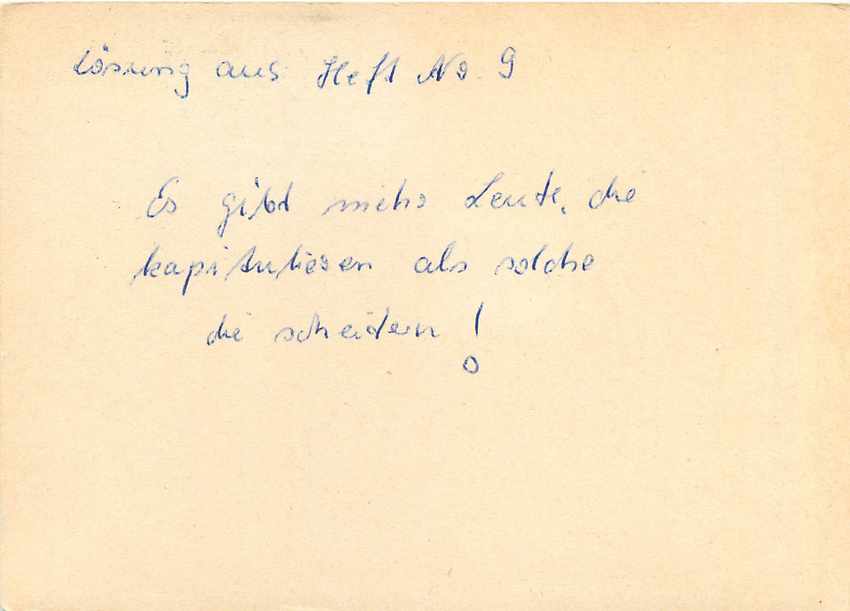 Lösung aus Heft No 9
Es gibt mehr Leute, die
kapitulieren als solche
die scheitern!